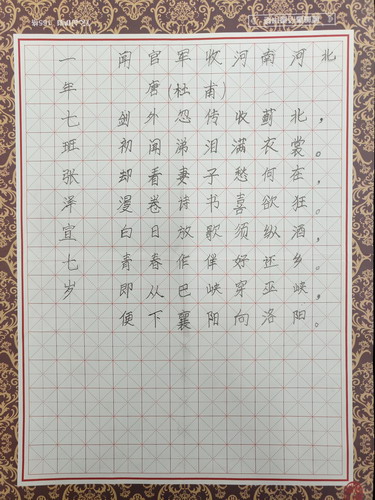 闻官军收河南河北
唐(杜甫)
剑外忽传收蓟北，
初闻涕泪满衣裳。
却看妻子愁何在，
漫卷诗书喜欲狂。
白日放歌须纵酒，
青春作伴好还乡。
即从巴峡穿巫峡，
便下襄阳向洛阳。
一年七班张泽宣七岁